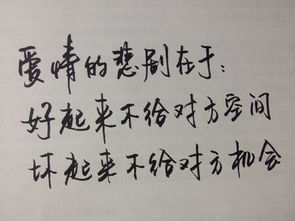 爱情的悲剧在于：
好起来不给对方空间
坏起来不给对方机会